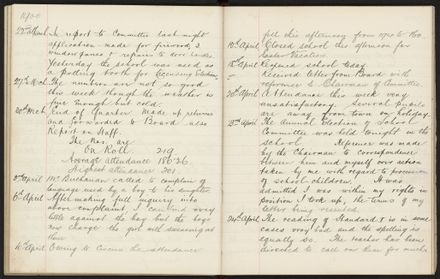 1900
22nd March In report to Committee last night
application made for firewood, 2
window panes & repairs to door locks.
Yesterday the school was used as
a Polling Booth for Licensing Election.
27th Mch The numbers are not so good
this week though the weather is
fine though but cold.
30th Mch End of Quarter. Made up returns
and forwarded to Board also
Report on Staff.
The Nos are
On Roll 219
Average attendance 186.26
Highest attendance 201
5th April Mr Buchanan called to complain of
language used by a boy to his daughter
6th April After making full inquiry into
above complaint I can find very
little against the boy but the boys
now charge the girl with swearing at
them
10th April Owing to Circus the attendance
fell this afternoon from 170 to 160.
12th April Closed school this afternoon for
Easter Vacation
18th April Reopened school today
Received letter from Board with
reference to Chairman of Committee
20th April Attendance this week very
unsatisfactory. Several pupils
are away from town on holiday.
23rd April The Annual Election of School
Committee was held tonight in the
school. Reference was made
by the Chairman to correspondence
between him and myself over action
taken by me with regard to
of school children. It was
admitted I was within my rights in
position I took up, the terms of my
letter being
24th April The reading of Standard is in some
cases very bad and the spelling is
equally so. The teacher has been
directed to call on them for much